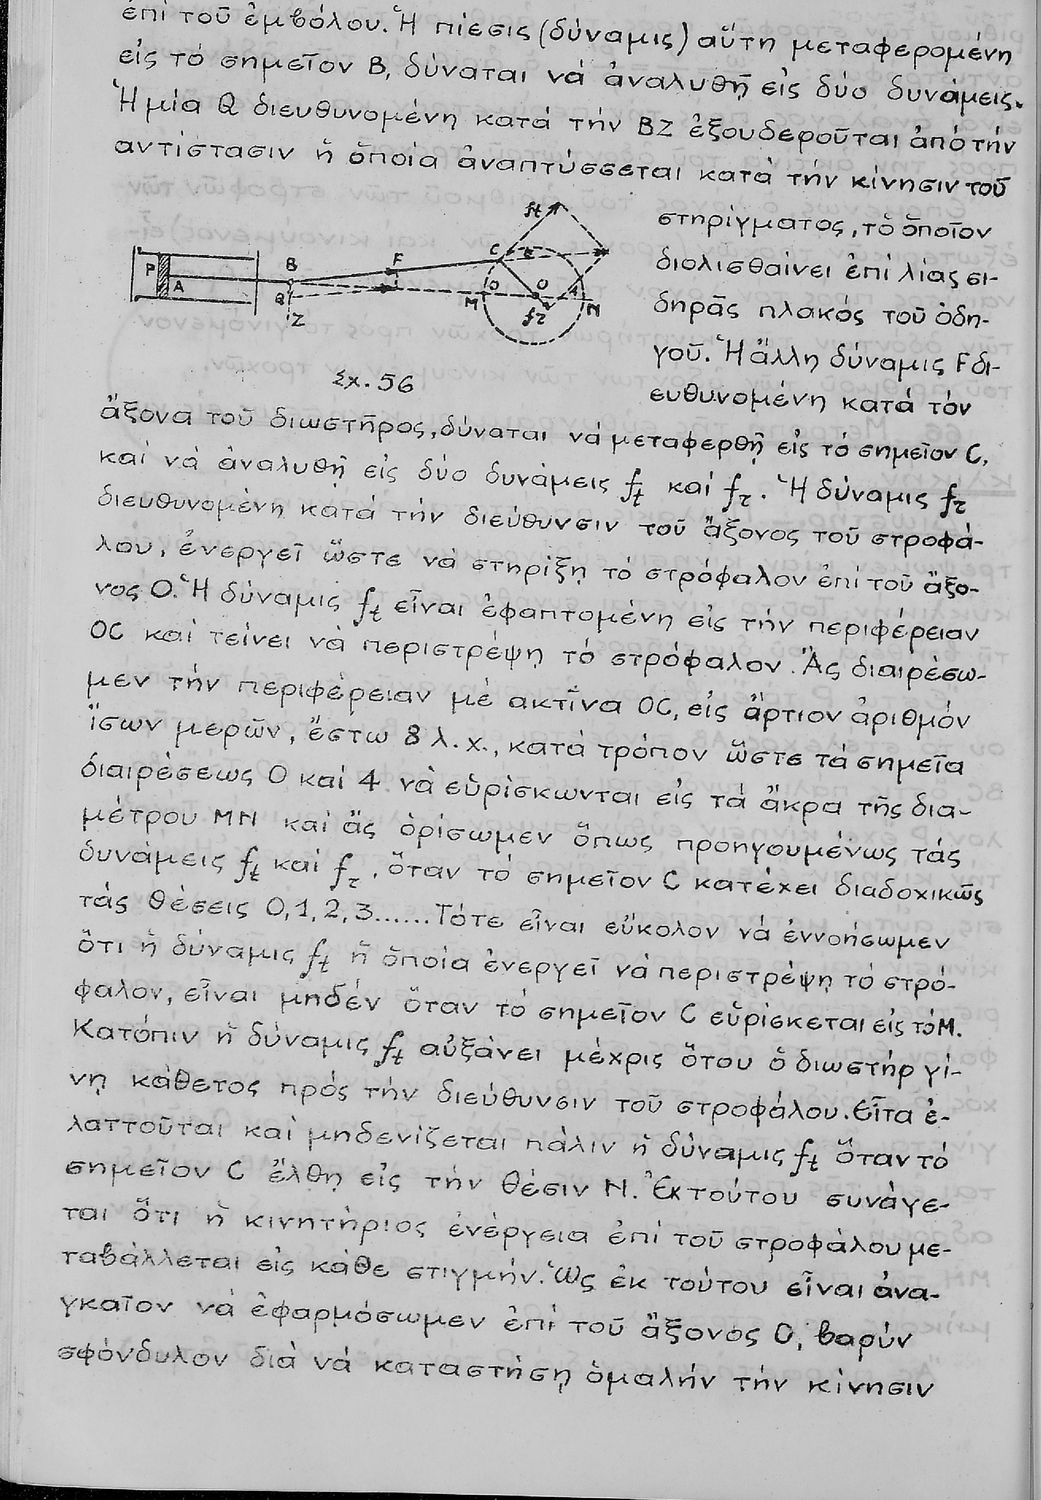 ἐπί τοῦ ἐμβόλου. Ἡ πίεσις (δύναμις) αὕτη μεταφερομένη
εἰς τό σημεῖον Β, δύναται νά ἀναλυθῇ εἰς δύο δυνάμεις.
Ἡ μία Q διευθυνομένη κατά τήν ΒΖ ἐξουδεροῦται ἀπό τήν
αντίστασιν ἥ ὅποία ἀναπτύσσεται κατά τήν κίνησιν τοῦ
στηρίγματος, τό ὅποῖον
διολισθαίνει ἐπί λίας σι-
δηρᾶς πλακός τοῦ ὁδη-
γοῦ. Ἡ ἄλλη δύναμις F δι-
ευθυνομένη κατά τόν
P
A
B
Q
Z
F
C
ft
M
O
O
4
N
fτ
Σχ. 56
ἄξονα τοῦ διωστῆρος, δύναται νά μεταφερθῇ εἰς τό σημεῖον C,
καί νά ἀναλυθῇ εἰς δύο δυνάμεις ft καί fτ. Ἡ δύναμις fτ
διευθυνομένη κατά τήν διεύθυνσιν τοῦ ἄξονος τοῦ στροφά-
λου, ἐνεργεῖ ὥστε νά στηρίξῃ τό στρόφαλον ἐπί τοῦ ἄξο-
νος Ο. Ἡ δύναμις ft εἶναι ἐφαπτομένη εἰς τήν περιφέρειαν
OC καί τείνει νά περιστρέψῃ τό στρόφαλον. Ἄς διαιρέσω-
μεν τήν περιφέρειαν μέ ακτῖνα OC, εἰς ἄρτιον ἀριθμόν
ἴσων μερῶν, ἔστω 8 λ.χ., κατά τρόπον ὥστε τά σημεῖα
διαιρέσεως 0 καί 4 νά εὑρίσκωνται εἰς τά ἄκρα τῆς δια-
μέτρου ΜΝ καί ἄς ὁρίσωμεν ὅπως προηγουμένως τάς
δυνάμεις ft καί fτ, ὅταν τό σημεῖον C κατέχει διαδοχικῶς
τάς θέσεις 0,1,2,3......Τότε εἶναι εὔκολον νά ἐννοήσωμεν
ὅτι ἥ δύναμις ft ἥ ὅποία ἐνεργεῖ νά περιστρέψῃ τό στρό-
φαλον, εἶναι μηδέν ὅταν τό σημεῖον C εὑρίσκεται εἰς τό Μ.
Κατόπιν ἥ δύναμις ft αὐξάνει μέχρις ὅτου ὅ διωστήρ γί-
νῃ κάθετος πρός τήν διεύθυνσιν τοῦ στροφάλου. Εἶτα ἐ-
λαττοῦται καί μηδενίζεται πάλιν ἥ δύναμις ft ὅταν τό
σημεῖον C ἔλθῃ εἰς τήν θέσιν Ν. Ἐκ τούτου συνάγε-
ται ὅτι ἥ κινητήριος ἐνέργεια ἐπί τοῦ στροφάλου με-
ταβάλλεται εἰς κάθε στιγμήν. Ὡς ἐκ τούτου εἶναι ἀνα-
γκαῖον νά ἐφαρμόσωμεν ἐπί τοῦ ἄξονος Ο, βαρύν
σφόνδυλον διά νά καταστήσῃ ὁμαλήν τήν κίνησιν